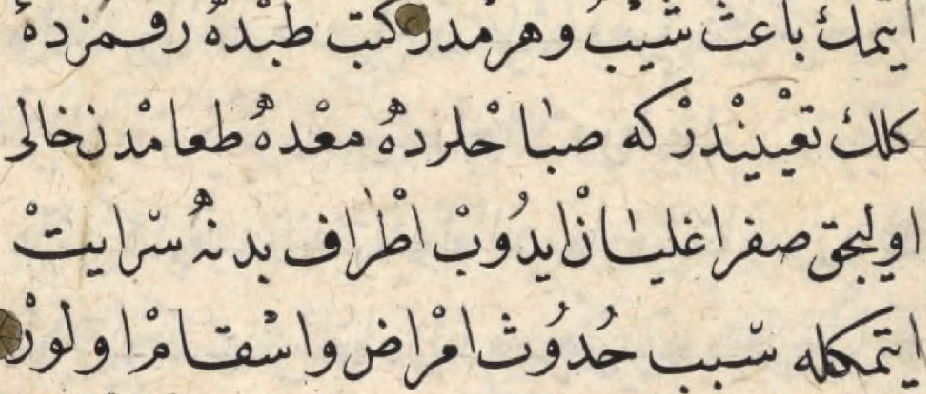 ایتمك باعث شیب و هرمدر كتب طبده رقمزدهٔ
كلك تعییندر كه صباحلرده معده طعامدن خالی
اولیجق صفرا غلیان ایدوب اطراف بدنه سرایت
ایتمكله سبب حدوث امراض و اسقام اولور